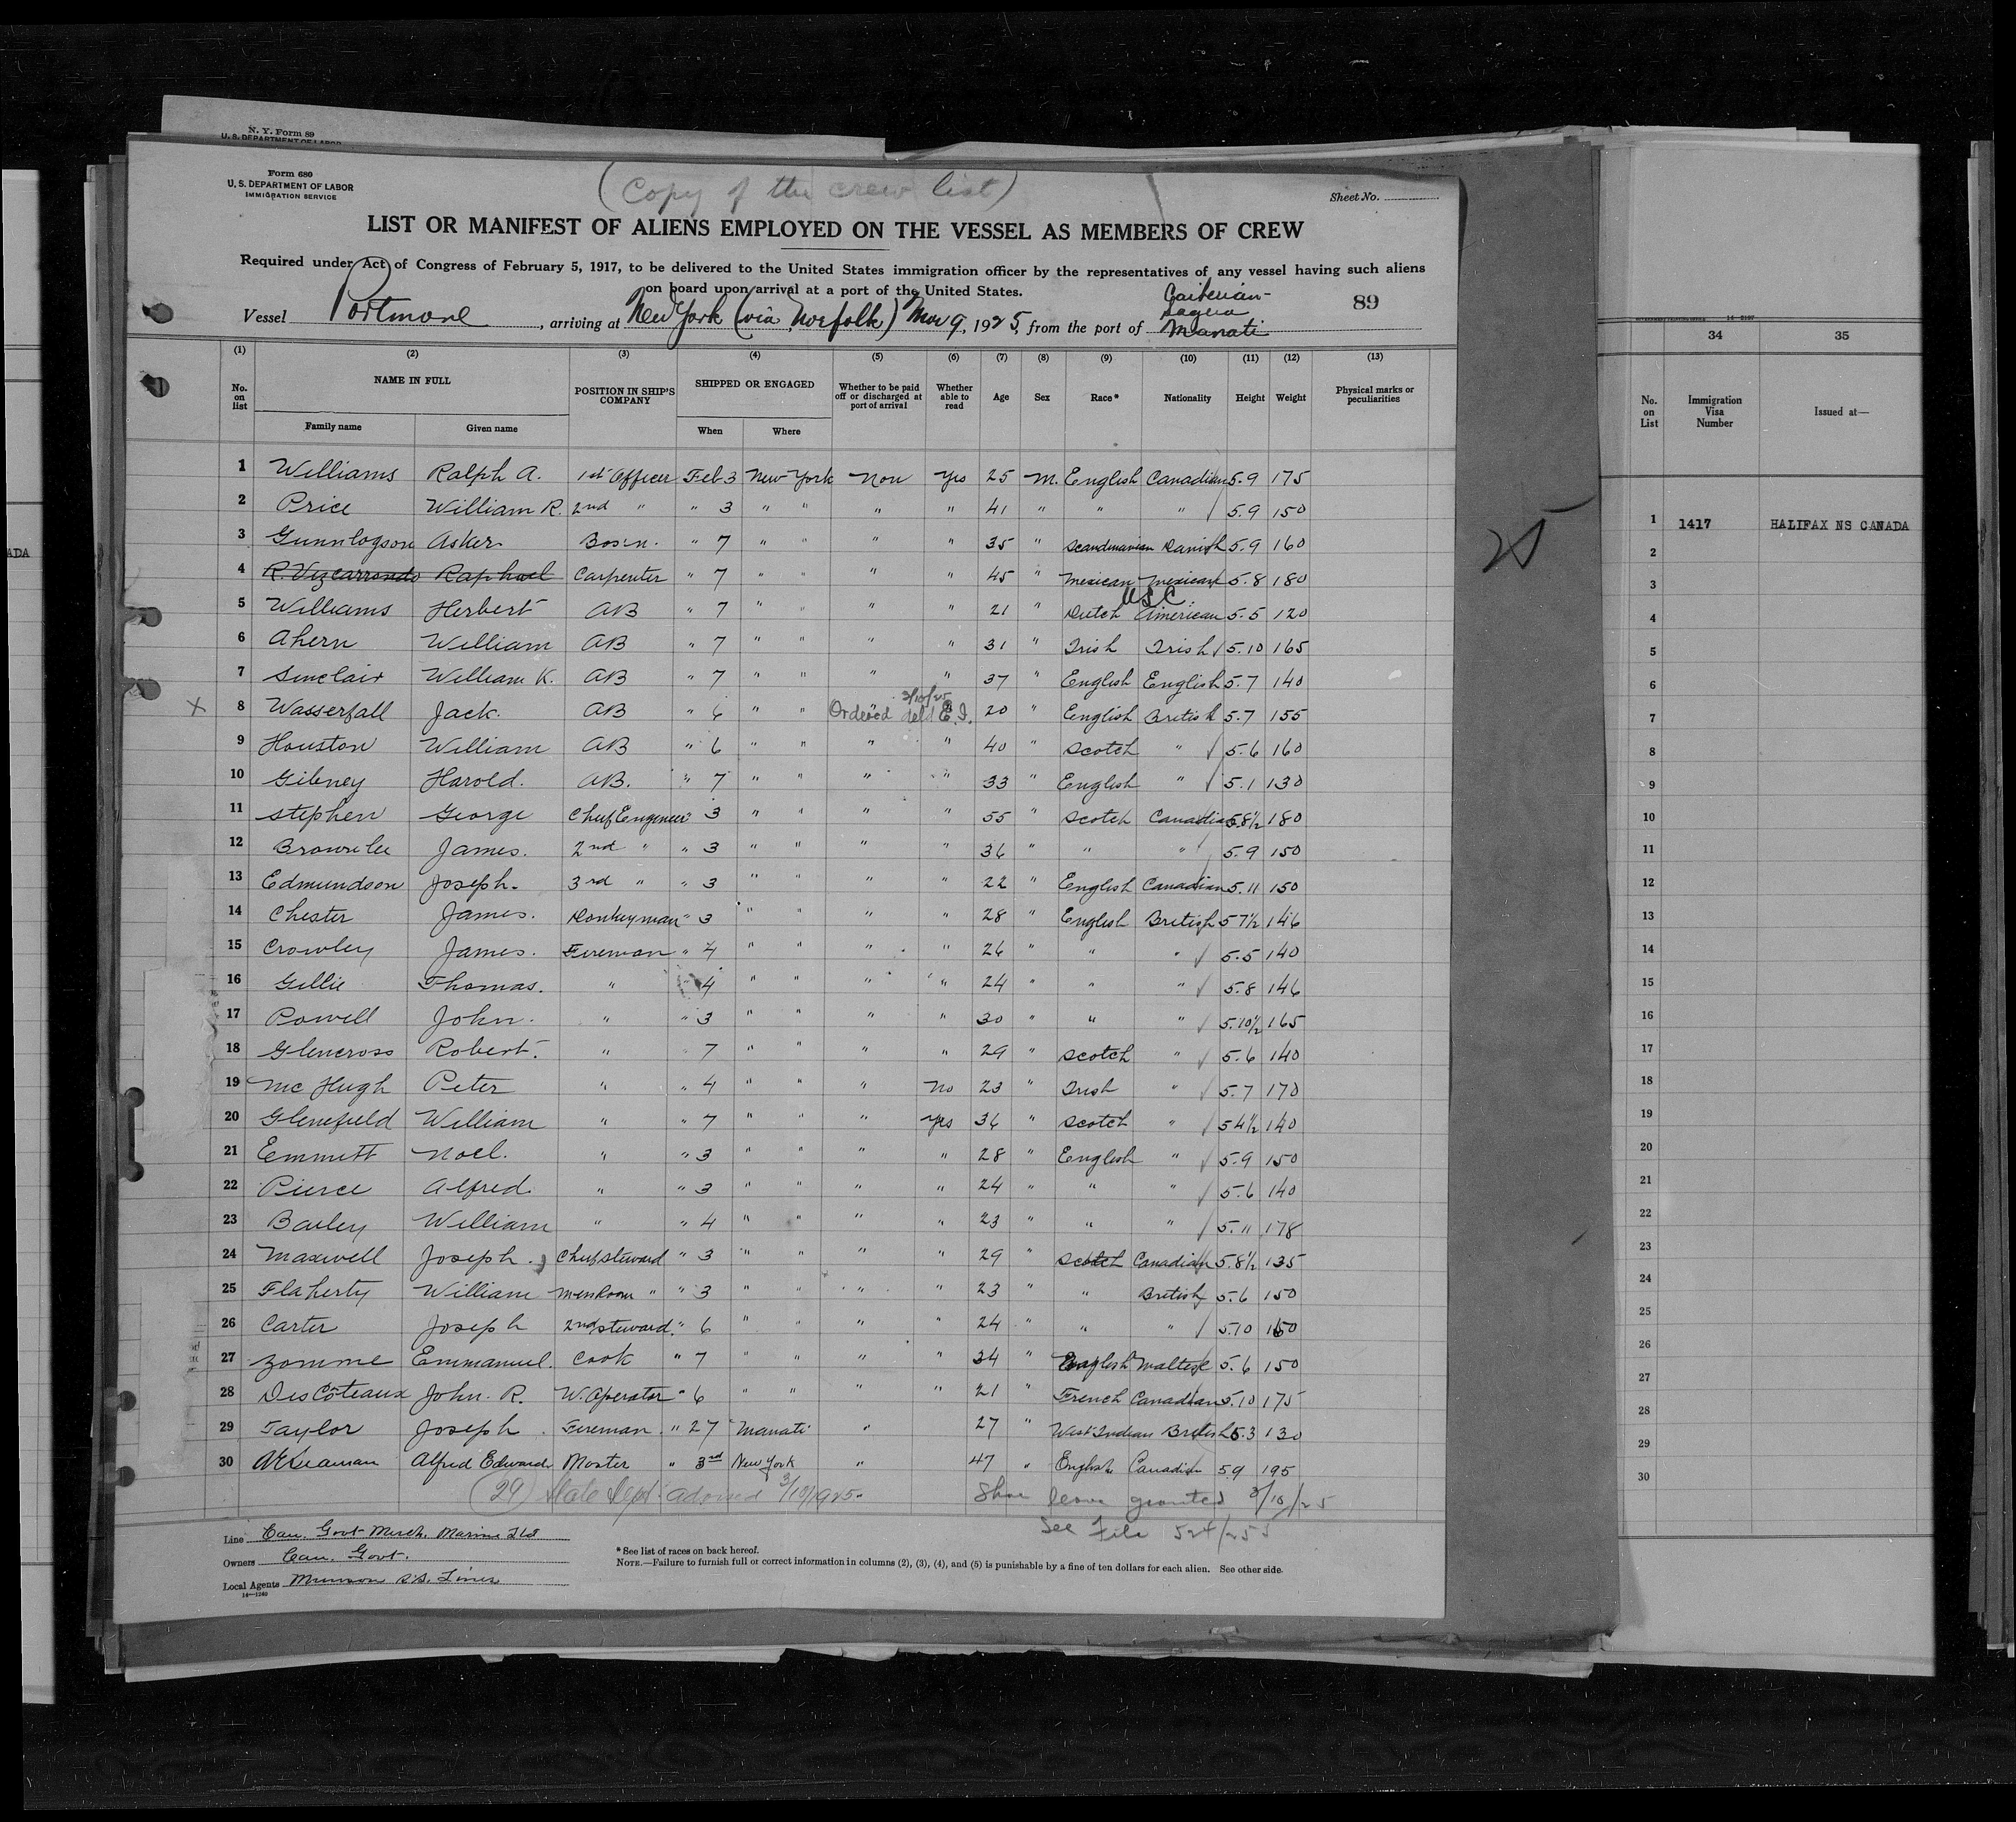 N. Y. Form 89
U. S. DEPARTMENT OF LABOR
Form 680
U. S. DEPARTMENT OF LABOR
IMMIGRATION SERVICE
(Copy of the crew list)
Sheet No.
LIST OR MANIFEST OF ALIENS EMPLOYED ON THE VESSEL AS MEMBERS OF CREW
Required under Act of Congress of February 5, 1917, to be delivered to the United States immigration officer by the representatives of any vessel having such aliens
on board upon arrival at a port of the United States.
89
Vessel Portmore, arriving at New York (via Norfolk) Mar 9, 1925, from the port of Caibarien- Sagua Manati
(1) (2) (3) (4) (5) (6) (7) (8) (9) (10) (11) (12) (13)
No. on list NAME IN FULL POSITION IN SHIP'S COMPANY SHIPPED OR ENGAGED Whether to be paid off or discharged at port of arrival Whether able to read Age Sex Race* Nationality Height Weight Physical marks or peculiarities
Family name Given name When Where
1 Williams Ralph A. 1st Officer Feb 3 New York Non Yes 25 M. English Canadian 5.9 175
2 Price William R. 2nd " " 3 " " " " 41 " " " 5.9 150
3 Gunnlogson Asker Bosn. " 7 " " " " 35 " Scandinavian Danish 5.9 160
4 R. Vizcarrondo Raphael Carpenter " 7 " " " " 45 " Mexican Mexican 5.8 180
USC
5 Williams Herbert AB " 7 " " " " 21 " Dutch American 5.5 120
6 Ahern William AB " 7 " " " " 31 " Irish Irish 5.10 165
7 Sinclair William K. AB " 7 " " " " 37 " English English 5.7 140
3/10/25
X 8 Wasserfall Jack. AB " 6 " " Ordered deld E.I. 20 " English British 5.7 155
9 Houston William AB " 6 " " " " 40 " Scotch " 5.6 160
10 Gibney Harold. AB. " 7 " " " " 33 " English " 5.1 130
11 Stephen George Chief Engineer " 3 " " " " 55 " Scotch Canadian 5.8½ 180
12 Brownlee James. 2nd " " 3 " " " " 36 " " " 5.9 150
13 Edmundson Joseph. 3rd " " 3 " " " " 22 " English Canadian 5.11 150
14 Chester James. Donkeyman " 3 " " " " 28 " English British 5 7½ 146
15 Crowley James. Fireman " 4 " " " " 26 " " " 5.5 140
16 Gillie Thomas. " " 4 " " " " 24 " " " 5.8 146
17 Powell John. " " 3 " " " " 30 " " " 5.10½ 165
18 Glencross Robert. " " 7 " " " " 29 " Scotch " 5.6 140
19 McHugh Peter " " 4 " " " No 23 " Irish " 5.7 170
20 Glenefield William " " 7 " " " Yes 36 " Scotch " 5 4½ 140
21 Emmitt Noel. " " 3 " " " " 28 " English " 5.9 150
22 Pierce Alfred. " " 3 " " " " 24 " " " 5.6 140
23 Bailey William " " 4 " " " " 23 " " " 5.11 178
24 Maxwell Joseph. Chief steward " 3 " " " " 29 " Scotch Canadian 5.8½ 135
25 Flaherty William Messroom " " 3 " " " " 23 " " British 5.6 150
26 Carter Joseph 2nd steward. " 6 " " " " 24 " " " 5.10 150
27 Zomme Emmanuel. Cook " 7 " " " " 34 " English Maltese 5.6 150
28 DesCôteaux John. R. W. Operator " 6 " " " " 21 " French Canadian 5.10 175
29 Taylor Joseph. Fireman. " 27 Manati " 27 " West Indian British 5.3 130
30 Alfred Edward Master " 3rd New York " 47 " English Canadian 5.9 195
(29) State Dept. advised 3/10/1925. Shore leave granted 3/10/25
See File 524/255
Line Can. Govt Merch. Marine Ltd
Owners Can. Govt.
Local Agents Munson S.S. Lines
14—1240
*See list of races on back hereof.
NOTE.—Failure to furnish full or correct information in columns (2), (3), (4), and (5) is punishable by a fine of ten dollars for each alien. See other side.
25
ADA
34 35
No. on List Immigration Visa Number Issued at—
1 1417 HALIFAX NS CANADA
2
3
4
5
6
7
8
9
10
11
12
13
14
15
16
17
18
19
20
21
22
23
24
25
26
27
28
29
30